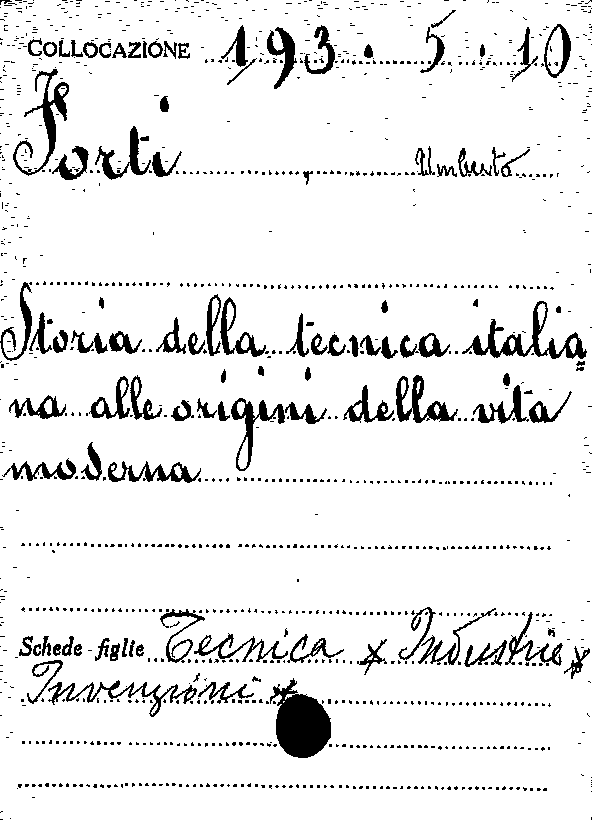 COLLOCAZIONE 193 . 5 . 10
Forti , Umberto
Storia della tecnica italia=
na alle origini della vita
moderna
Schede figlie Tecnica * Industrie *
Invenzioni *